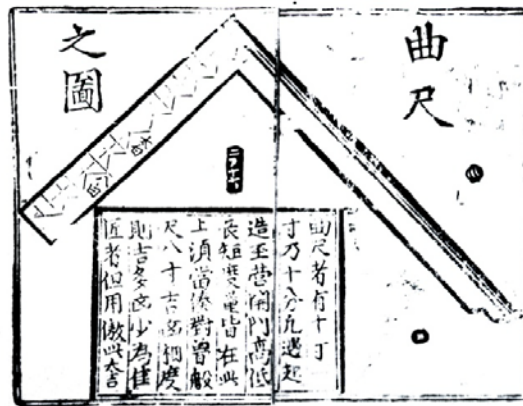 曲尺
之圖
曲尺者有十寸一
寸乃十分凡遇起
造至營開門高低
長短度量皆在此
上須當湊對魯般
尺八寸吉凶相度
則吉多凶少為佳
匠者但用倣此大吉